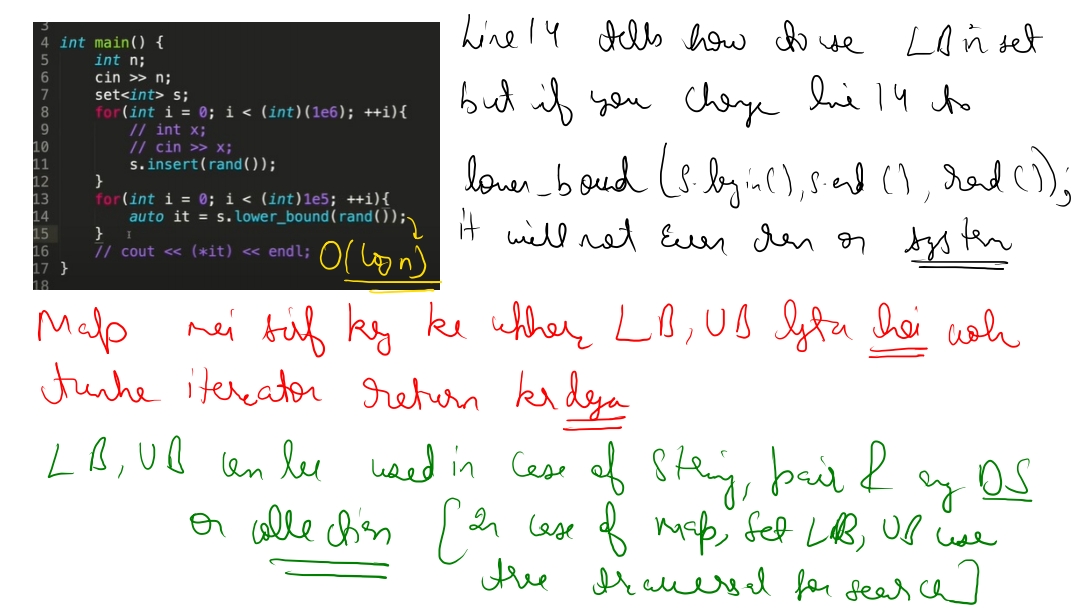 3
4 int main() {
5 int n;
6 cin >> n;
7 set<int> s;
8 for(int i = 0; i < (int)(1e6); ++i){
9 // int x;
10 // cin >> x;
11 s.insert(rand());
12 }
13 for(int i = 0; i < (int)1e5; ++i){
14 auto it = s.lower_bound(rand());
15 }
16 // cout << (*it) << endl;
17 }
18
O(log n)
Line 14 tells how to use LB in set
but if you change line 14 to
lower_bound (s.begin(), s.end (), rand ());
it will not even run on system
Map mei sirf key ke upper LB, UB lgta hei woh
tumhe iterator return kr dega
LB, UB can be used in case of string, pair & any DS
or collection [In case of map, set LB, UB use
tree traversal for search]